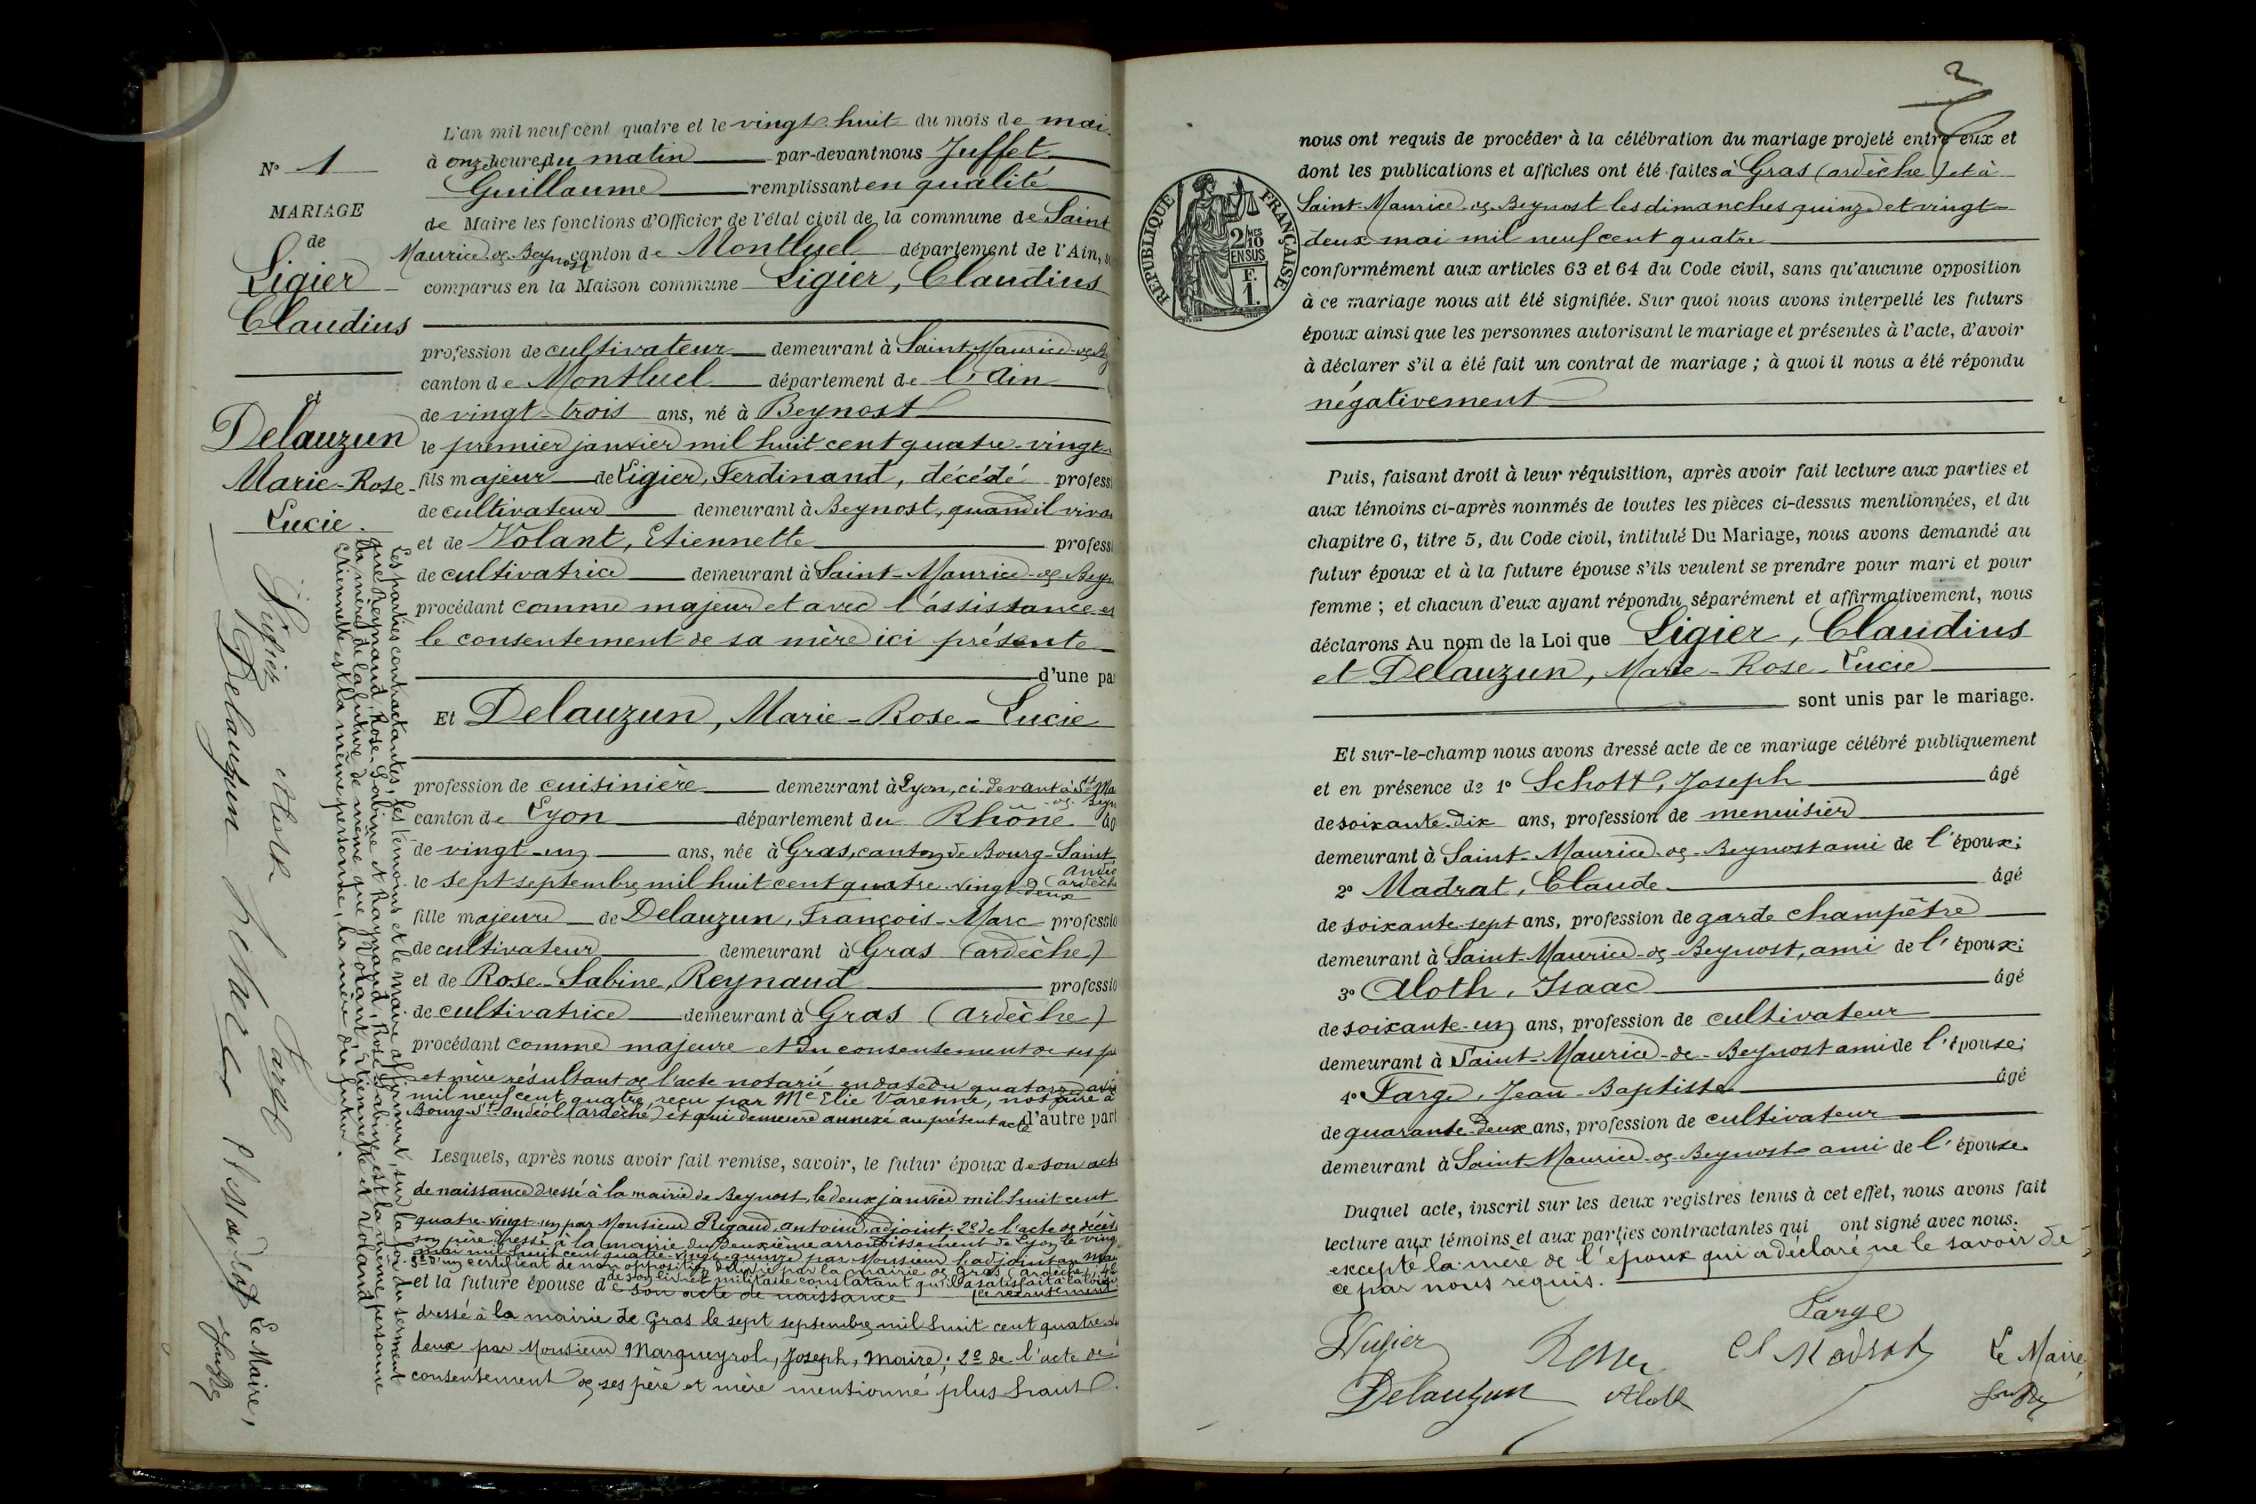 N° 1
MARIAGE
de
Ligier
Claudius
et
Delauzun
Marie-Rose-
Lucie.
L'an mil neuf cent quatre et le vingt-huit du mois de mai
à onze heures du matin par-devant nous Juffet
Guillaume remplissant en qualité
de Maire les fonctions d'Officier de l'état civil de la commune de Saint
Maurice-de-Beynost canton de Montluel département de l'Ain,
comparus en la Maison commune Ligier, Claudius
profession de cultivateur demeurant à Saint-Maurice-de-B
canton de Montluel département de l'Ain
de vingt-trois ans, né à Beynost
le premier janvier mil huit cent quatre-vingt-
fils majeur de Ligier, Ferdinand, décédé professi
de cultivateur demeurant à Beynost, quand il viva
et de Volant, Etiennette professi
de cultivatrice demeurant à Saint-Maurice-de-Beyn
procédant comme majeur et avec l'assistance et
le consentement de sa mère ici présente
d'une pa
Et Delauzun, Marie-Rose-Lucie
profession de cuisinière demeurant à Lyon, ci-devant à St Ma
-de-Beyn
canton de Lyon département du Rhône âg
de vingt-un ans, née à Gras, canton de Bourg-Saint-
Andéo
le sept septembre mil huit cent quatre-vingt-deux (ardèche
fille majeure de Delauzun, François-Marc professio
de cultivateur demeurant à Gras (ardèche)
et de Rose-Sabine, Reynaud professio
de cultivatrice demeurant à Gras (Ardèche)
procédant comme majeure et du consentement de ses p
et mère résultant de l'acte notarié en date du quatorze avri
mil neuf cent quatre, reçu par Me Elie Varenne, notaire à
Bourg-St-Andéol (ardèche) et qui demeure annexé au présent acte d'autre part
Lesquels, après nous avoir fait remise, savoir, le futur époux de son acte
de naissance dressé à la mairie de Beynost, le deux janvier mil huit cent
quatre-vingt-un par Monsieur Rigaud, Antoine, adjoint; 2° de l'acte de décès
son père dressé à la mairie du deuxième arrondissement de Lyon le vingt
mai mil huit cent quatre-vingt-quinze par Monsieur l'adjoint au Mai
3° d'un certificat de non opposition délivré par la mairie de Gras (ardèche); 4°
de son livret militaire constatant qu'il a satisfait à la loi de
et la future épouse de son acte de naissance recrutement
dressé à la mairie de Gras le sept septembre mil huit cent quatre-v
deux par Monsieur Marqueyrol, Joseph, Maire; 2° de l'acte de
consentement de ses père et mère mentionné plus haut.
Les parties contractantes, les témoins et le maire affirment, sur la foi du serment
que Reynaud, Rose-Sabine et Raynaud, Rose-Sabine est la même personne
la mère de la future de même que Volant, Etiennette et Voland
Etiennette est la même personne, la mère du futur.
Ligier Aloth Farge
Delauzun
Le Maire,
2
RÉPUBLIQUE FRANÇAISE
2/10 MES
EN SUS
F.
1.
nous ont requis de procéder à la célébration du mariage projeté entre eux et
dont les publications et affiches ont été faites à Gras (ardèche) et à
Saint-Maurice-de-Beynost les dimanches quinze et vingt-
deux mai mil neuf cent quatre
conformément aux articles 63 et 64 du Code civil, sans qu'aucune opposition
à ce mariage nous ait été signifiée. Sur quoi nous avons interpellé les futurs
époux ainsi que les personnes autorisant le mariage et présentes à l'acte, d'avoir
à déclarer s'il a été fait un contrat de mariage ; à quoi il nous a été répondu
négativement
Puis, faisant droit à leur réquisition, après avoir fait lecture aux parties et
aux témoins ci-après nommés de toutes les pièces ci-dessus mentionnées, et du
chapitre 6, titre 5, du Code civil, intitulé Du Mariage, nous avons demandé au
futur époux et à la future épouse s'ils veulent se prendre pour mari et pour
femme ; et chacun d'eux ayant répondu séparément et affirmativement, nous
déclarons Au nom de la Loi que Ligier, Claudius
et Delauzun, Marie-Rose-Lucie
sont unis par le mariage.
Et sur-le-champ nous avons dressé acte de ce mariage célébré publiquement
et en présence de 1° Schott, Joseph âgé
de soixante-dix ans, profession de menuisier
demeurant à Saint-Maurice-de-Beynost ami de l'époux;
2° Madrat, Claude âgé
de soixante-sept ans, profession de garde champêtre
demeurant à Saint-Maurice-de-Beynost, ami de l'époux;
3° Aloth, Isaac âgé
de soixante-un ans, profession de cultivateur
demeurant à Saint-Maurice-de-Beynost ami de l'épouse;
4° Farge, Jean-Baptiste âgé
de quarante-deux ans, profession de cultivateur
demeurant à Saint-Maurice-de-Beynost ami de l'épouse.
Duquel acte, inscrit sur les deux registres tenus à cet effet, nous avons fait
lecture aux témoins et aux parties contractantes qui ont signé avec nous.
excepté la mère de l'époux qui a déclaré ne le savoir de
ce par nous requis.
Farge
Ligier Cl Madrat Le Maire,
Delauzun Aloth